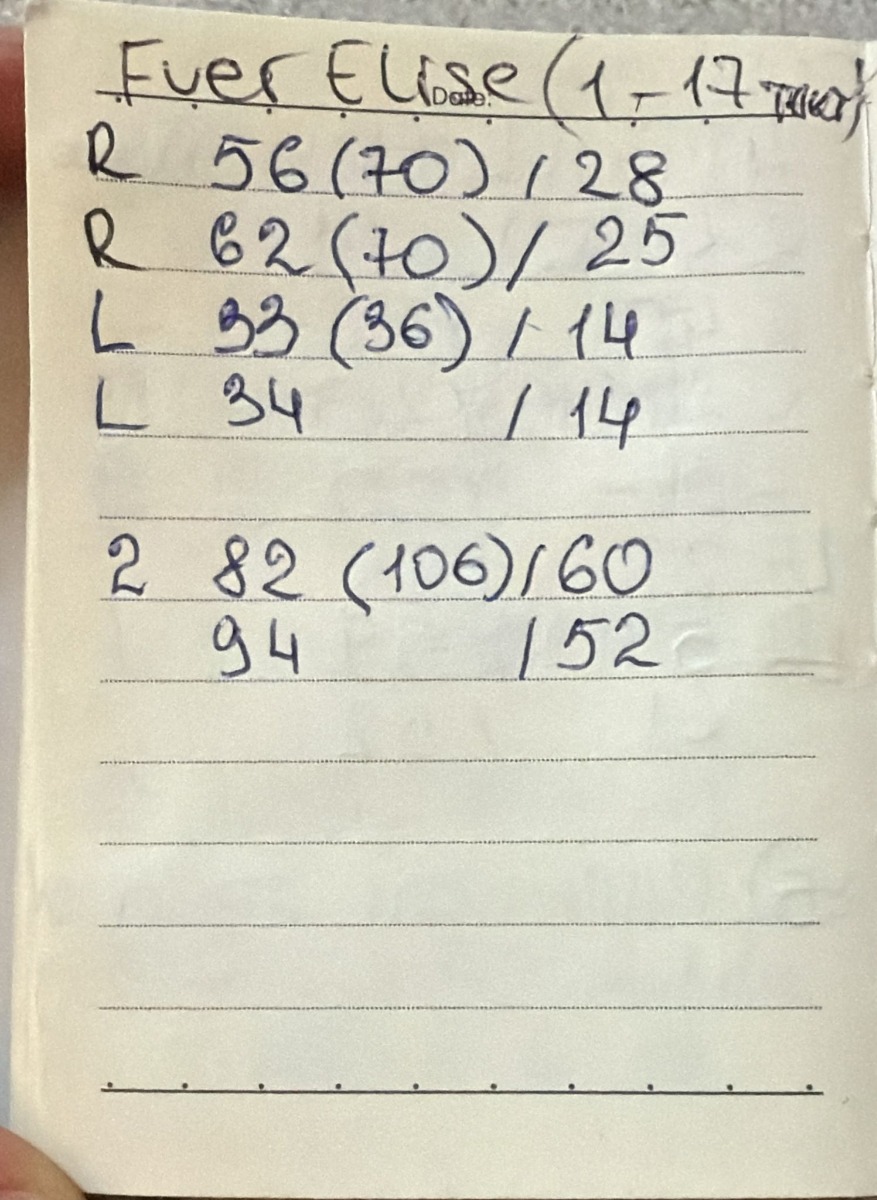 Fuer Elise (1-17 такт)
Date:
R 56 (70) / 28
R 62 (70) / 25
L 33 (36) / 14
L 34 / 14
2 82 (106) / 60
94 / 52